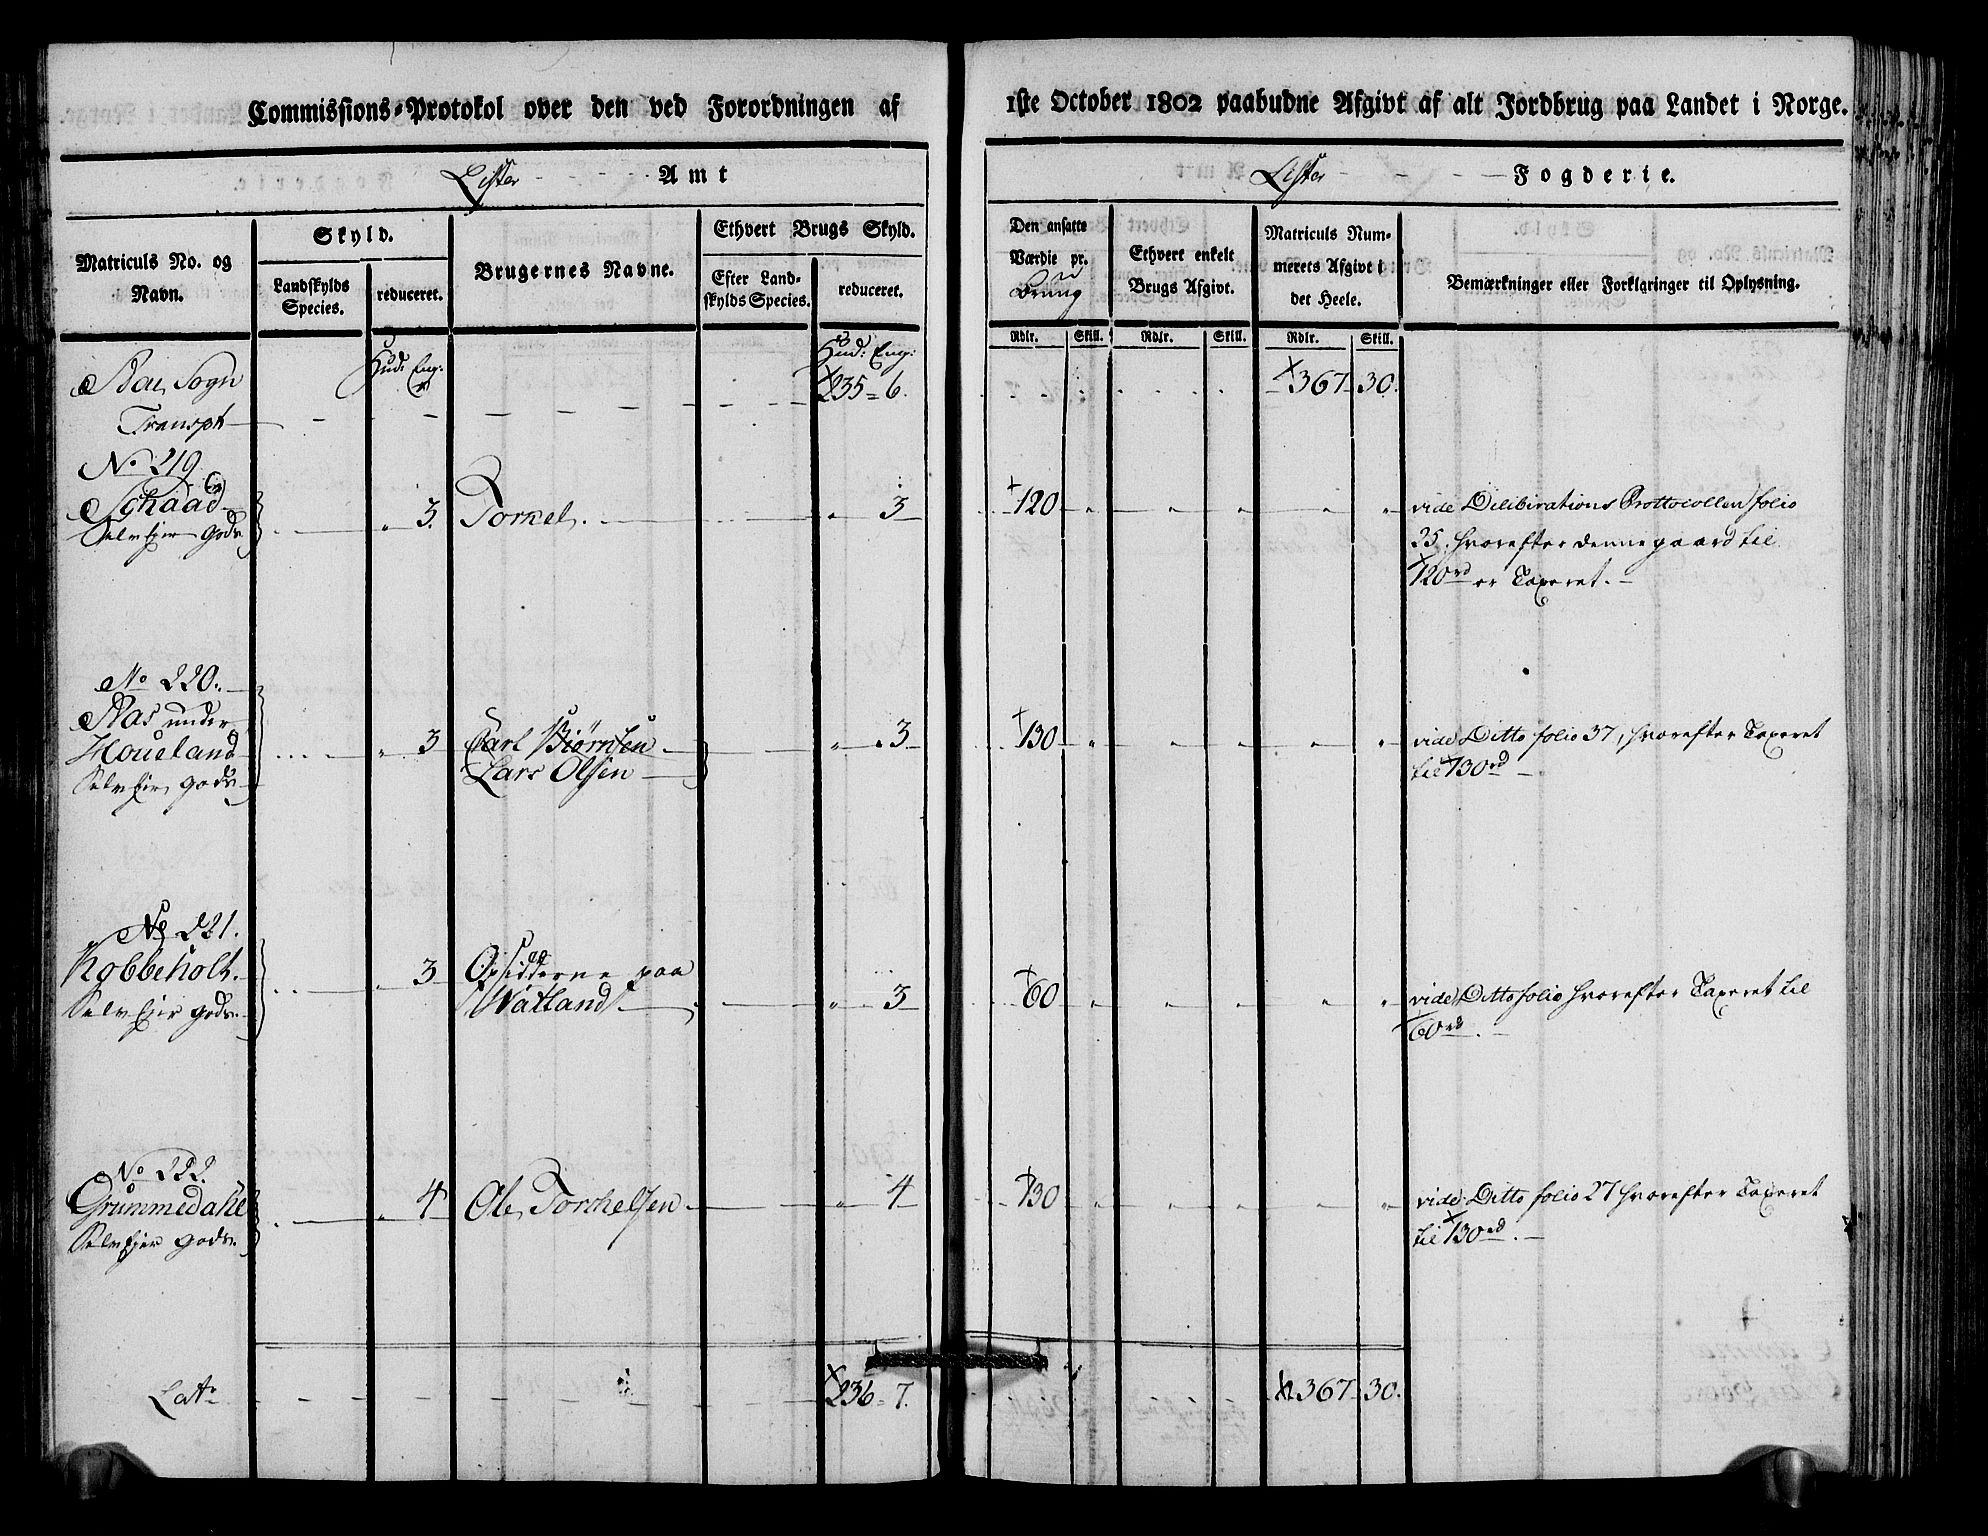 Commissions-Protokol over den ved Forordningen af
1ste October 1802 paabudne Afgivt af alt Jordbrug paa Landet i Norge.
Lister Amt
Lister Fogderie.
Matriculs No. og Navn.
Skyld.
Landskylds Species.
reduceret.
Brugernes Navne.
Ethvert Brugs Skyld.
Efter Landskylds Species.
reduceret.
Den ansatte Værdie pr. Brug
Ethvert enkelt Brugs Afgivt.
Matriculs Nummerets Afgivt i det Heele.
Bemærkninger eller Forklaringer til Oplysning.
Rdlr. Skill. Rdlr. Skill. Rdlr. Skill.
Hud: Eng:
Hud: Eng:
Sogn
Transpt
235 = 6.
367 30.
No 219.
Schaad
Selv Eier gods
3.
Torkel
3
120
vide Deliberations Prottocollen folio
35. hvorefter denne gaard til
120rd er Taxeret.
No 220.
Aas under
Houeland
Selv Eier gods
3
Carl Biørnsen
Lars Olsen
3
130
vide Ditto folio 37, hvorefter Taxeret
til 130rd
No 221.
Kobbeholt.
Selv Eier gods.
3
Opsidderne paa
Watland
3
60
vide Ditto folio hvorefter Taxeret til
60rd.
No 222.
Grummedahl
Selv Eier gods.
4
Ole Torkelsen
4
130
vide Ditto folio 27 hvorefter Taxeret
til 130rd.
Latr
236 = 7.
367 30.